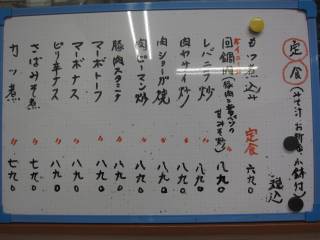 定食(みそ汁 お新香 小鉢付)
税込
もつ煮込み 定食 六九〇
ホイコーロー
回鍋肉(豚肉と黄ベツの甘みそ炒) 〃 八九〇
レバニラ炒 〃 八九〇
肉ヤサイ炒 〃 八九〇
肉ショーガ焼 〃 八九〇
肉ピーマン炒 〃 八九〇
豚肉スタミナ 〃 八九〇
マーボトーフ 〃 八九〇
マーボナス 〃 八九〇
ピリ辛ナス 〃 八九〇
さばみそ煮 〃 七九〇
カツ煮 〃 七九〇